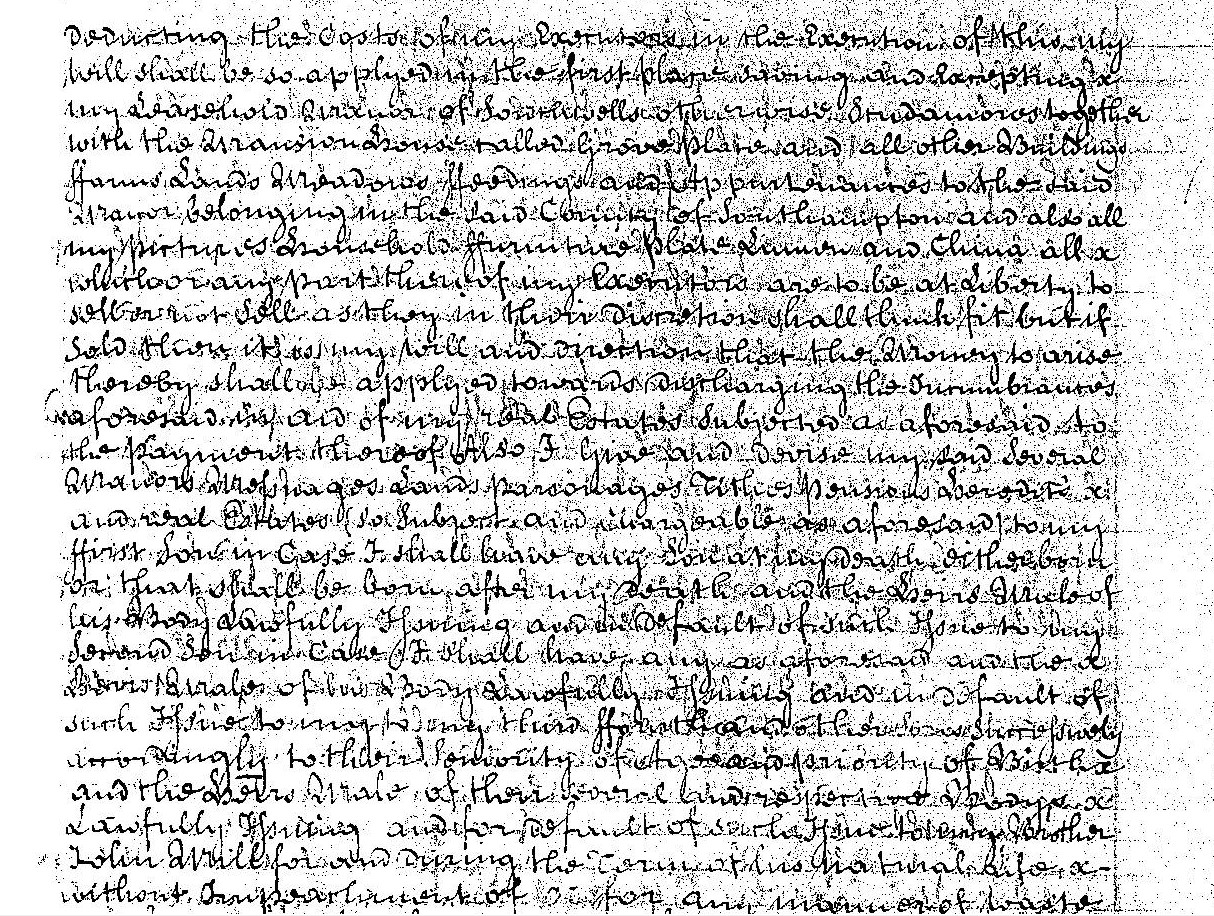 Deducting the Costs of my Executors in the Execution of this my
Will shall be so applyed in the first place saving and Excepting x
my Leasehold Manor of Southwells otherwise Scudamores together
with the Mansion House called Grove Place and all other Buildings
ffarms Lands Meadows ffeedings and Appurtenances to the said
Manor belonging in the said County of Southampton and also all
my Pictures Household ffurniture Plate Linnen and China all x
which or any Part thereof my Executors are to be at Liberty to
sell or not Sell as they in their Discretion shall think fit but if
Sold then it is my Will and Direction that the Money to arise
thereby shall be applyed towards discharging the Incumbrances
aforesaid in aid of my real Estates Subjected as aforesaid to
the Payment thereof Also I Give and Devise my said Several
Manors Messuages Lands Parsonages Tithes Pensions Heredits x
and real Estates (so Subject and chargeable as aforesaid) to my
ffirst Son in Case I shall leave any Son at my Death either born
or that shall be born after my Death and the Heirs Male of
his Body Lawfully Issuing and in Default of such Issue to my
Second Son in Case I shall have any as aforesaid and the x
Heirs Male of his Body Lawfully Issuing and in Default of
such Issue to my to my third ffourth and other Sons Successively
accordingly to their Seniority of Age and priority of Birth x
and the Heirs Male of their several and respective Bodys x
Lawfully Issuing and for Default of such Issue to my Brother
John Mill for and during the Term of his natural Life x
without Impeachment of or for any manner of waste